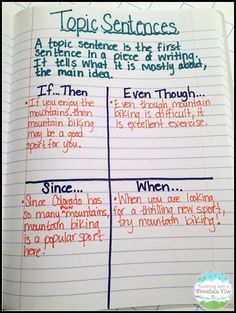 Topic Sentences
A topic sentence is the first
sentence in a piece of writing.
It tells what it is mostly about,
the main idea.
If...Then
• If you enjoy the
mountains, then mountain
biking may be a good
sport for you.
Even Though...
• Even though mountain
biking is difficult, it
is excellent exercise.
Since...
• Since Colorado has
so many mountains,
mountain biking
is a popular sport
here.
When...
• When you are looking
for a thrilling new sport,
try mountain biking!
Teaching with a
Mountain View